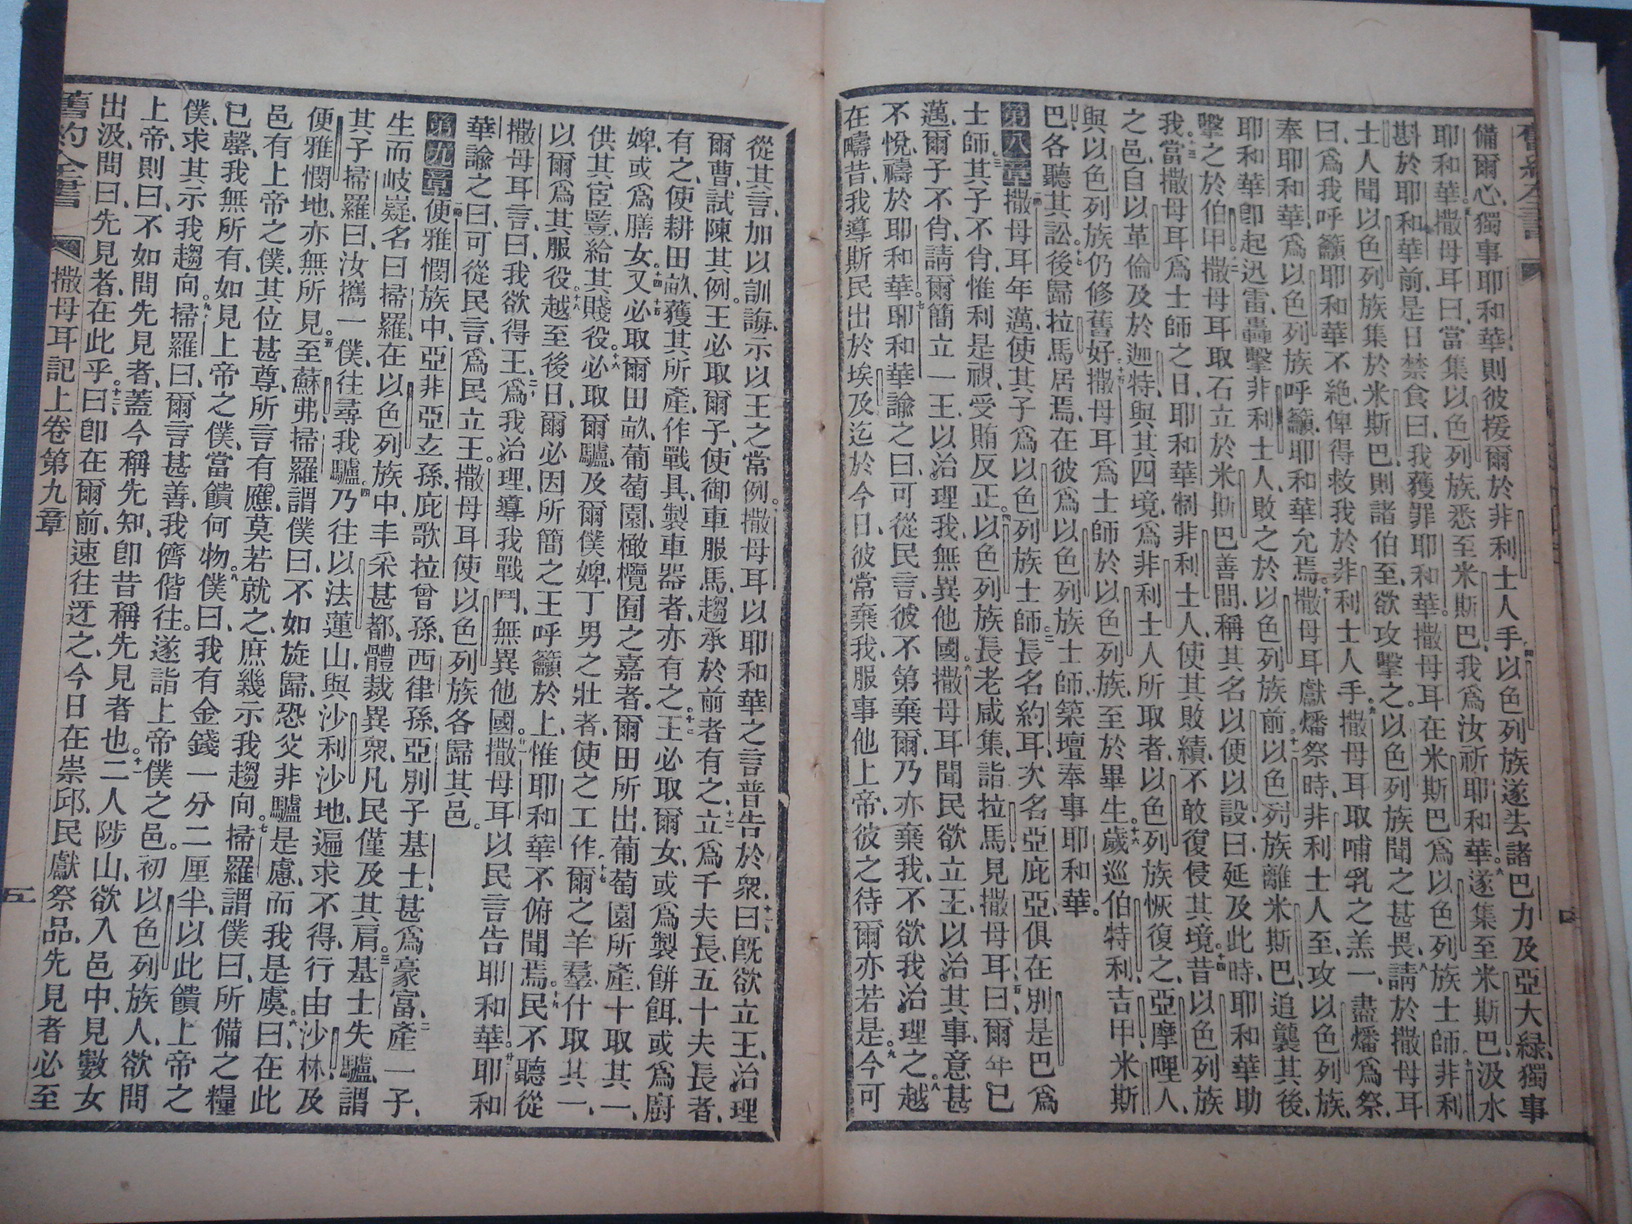 舊約全書
備爾心、獨事耶和華、則彼援爾於非利士人手、以色列族遂去諸巴力及亞大綠、獨事
耶和華、撒母耳曰、當集以色列族、悉至米斯巴、我爲汝祈耶和華。遂集至米斯巴、汲水
斟於耶和華前、是日禁食曰、我獲罪耶和華。撒母耳在米斯巴爲以色列族士師、非利
士人聞以色列族集於米斯巴、則諸伯至、欲攻擊之。以色列族聞之甚畏、請於撒母耳
曰、爲我呼籲耶和華不絕、俾得救我於非利士人手、撒母耳取哺乳之羔一、盡燔爲祭、
奉耶和華、爲以色列族呼籲、耶和華允焉。撒母耳獻燔祭時、非利士人至、攻以色列族、
耶和華卽起迅雷、轟擊非利士人、敗之於以色列族前、以色列族離米斯巴、追襲其後、
擊之於伯甲、撒母耳取石、立於米斯巴善間、稱其名以便以設、曰、延及此時、耶和華助
我、當撒母耳爲士師之日、耶和華制非利士人、使其敗績、不敢復侵其境、昔以色列族
之邑、自以革倫及於迦特、與其四境、爲非利士人所取者、以色列族恢復之、亞摩哩人、
與以色列族仍修舊好、撒母耳爲士師於以色列族、至於畢生。歲巡伯特利、吉甲、米斯
巴、各聽其訟、後歸拉馬居焉、在彼爲以色列族士師、築壇奉事耶和華。
第八章 撒母耳年邁、使其子爲以色列族士師、長名約耳、次名亞庇亞、俱在別是巴爲
士師、其子不肖、惟利是視、受賄反正。以色列族長老咸集、詣拉馬、見撒母耳曰、爾年已
邁、爾子不肖、請爾簡立一王、以治理我、無異他國、撒母耳聞民欲立王、以治其事、意甚
不悅、禱於耶和華。耶和華諭之曰、可從民言、彼不第棄爾、乃亦棄我、不欲我治理之、越
在疇昔、我導斯民出於埃及、迄於今日、彼常棄我、服事他上帝、彼之待爾亦若是、今可
從其言、加以訓誨、示以王之常例。撒母耳以耶和華之言普告於衆、曰、旣欲立王、治理
爾曹、試陳其例。王必取爾子、使御車服馬、趨承於前者有之、立爲千夫長、五十夫長者、
有之、使耕田畝、獲其所產、作戰具、製車器者、亦有之、王必取爾女、或爲製餅餌、或爲廚
婢、或爲膳女、又必取爾田畝、葡萄園、橄欖囿之嘉者。爾田所出、葡萄園所產、十取其一、
供其宦豎、給其賤役、必取爾驢、及爾僕婢、丁男之壯者、使之工作、爾之羊羣、什取其一、
以爾爲其服役、越至後日、爾必因所簡之王、呼籲於上、惟耶和華不俯聞焉、民不聽從
撒母耳言、曰、我欲得王、爲我治理、導我戰鬥、無異他國。撒母耳以民言告耶和華、耶和
華諭之曰、可從民言、爲民立王。撒母耳使以色列族各歸其邑。
第九章 便雅憫族中、亞非亞玄孫、庇歌拉曾孫、西律孫、亞別子基士、甚爲豪富、產一子、
生而岐嶷、名曰掃羅、在以色列族中、丰采甚都、體裁異衆、凡民僅及其肩、基士失驢、謂
其子掃羅曰、汝攜一僕、往尋我驢、乃往以法蓮山、與沙利沙地、遍求不得、行由沙林、及
便雅憫地、亦無所見、至蘇弗、掃羅謂僕曰、不如旋歸、恐父非驢是慮、而我是虞、曰、在此
邑有上帝之僕、其位甚尊、所言有應、莫若就之、庶幾示我趨向。掃羅謂僕曰、所備之糧
已罄、我無所有、如見上帝之僕、當饋何物、僕曰、我有金錢一分二厘半、以此饋上帝之
僕、求其示我趨向、掃羅曰、爾言甚善、我儕偕往。遂詣上帝僕之邑。初以色列族人、欲問
上帝、則曰、不如問先見者、蓋今稱先知、卽昔稱先見者也、二人陟山、欲入邑中、見數女
出汲、問曰、先見者在此乎、曰、卽在爾前、速往迓之、今日在崇邱、民獻祭品、先見者必至
舊約全書 撒母耳記上卷第九章 五